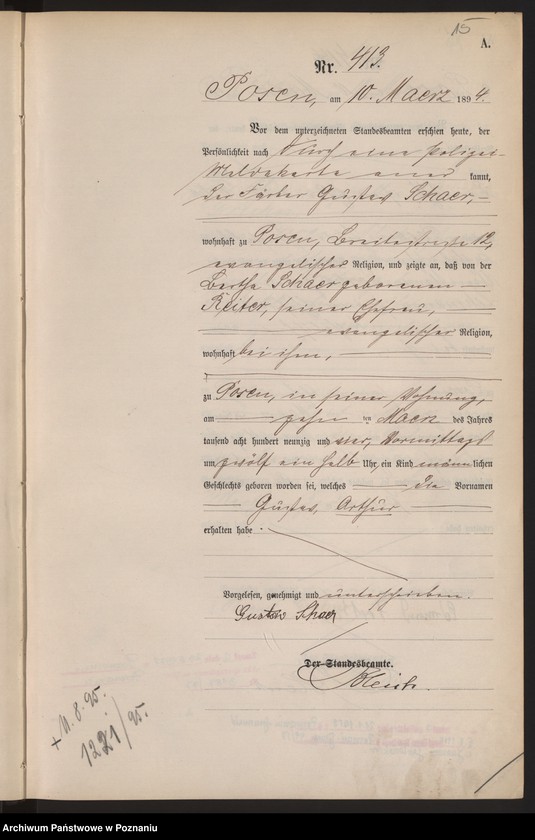 15
A.
Nr. 413.
Posen, am 10. Maerz 1894.
Vor dem unterzeichneten Standesbeamten erschien heute, der
Persönlichkeit nach durch eine Polizei-
Meldekarte aner kannt,
der Färber Gustav Schaer,
wohnhaft zu Posen, Breitestraße 12,
evangelischer Religion, und zeigte an, daß von der
Bertha Schaer geborenen
Reiter, seiner Ehefrau,
evangelischer Religion,
wohnhaft bei ihm,
zu Posen, in seiner Wohnung,
am zehn ten Maerz des Jahres
tausend acht hundert neunzig und vier, Vormittags
um zwölf ein halb Uhr, ein Kind männlichen
Geschlechts geboren worden sei, welches die Vornamen
Gustav Arthur
erhalten habe.
Vorgelesen, genehmigt und unterschrieben.
Gustav Schaer
Der Standesbeamte.
+ 11.8.95.
1221/95.
Archiwum Państwowe w Poznaniu